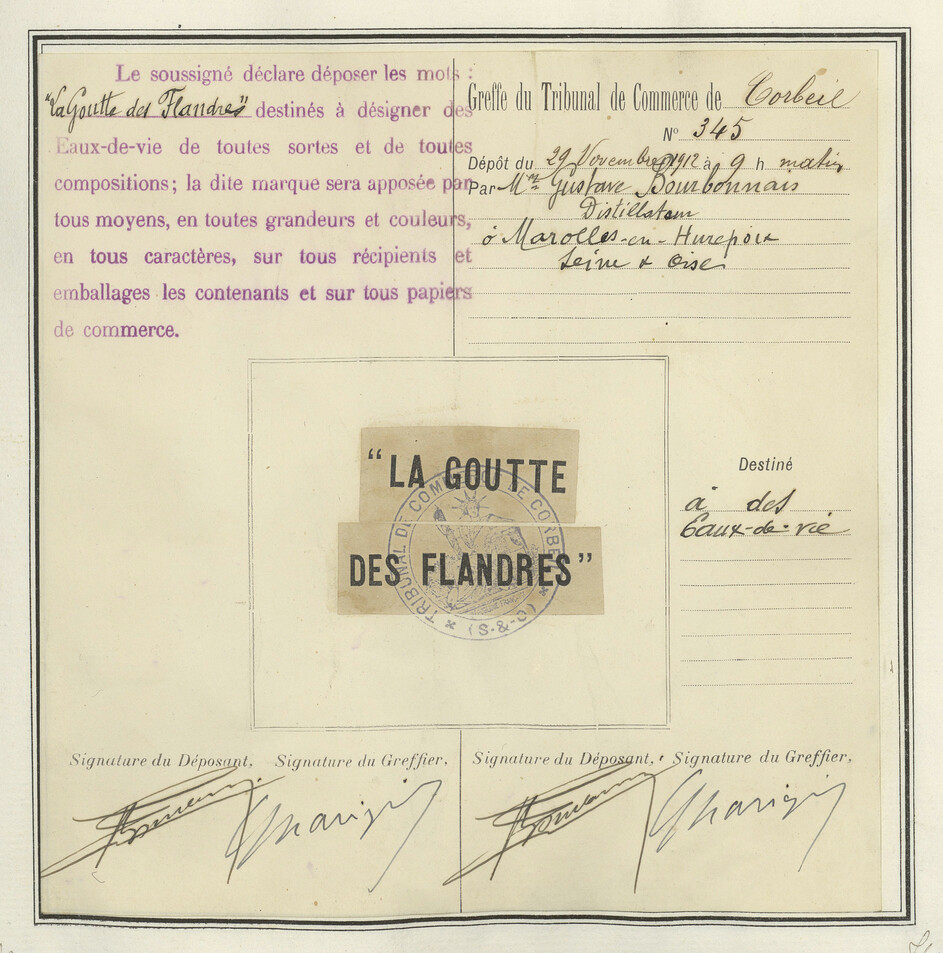 Le soussigné déclare déposer les mots :
"La Goutte des Flandres" destinés à désigner des
Eaux-de-vie de toutes sortes et de toutes
compositions; la dite marque sera apposée par
tous moyens, en toutes grandeurs et couleurs,
en tous caractères, sur tous récipients et
emballages les contenants et sur tous papiers
de commerce.
Greffe du Tribunal de Commerce de Corbeil
N° 345
Dépôt du 29 Novembre 1912 à 9 h matin
Par Mr Gustave Bourbonnais
Distillateur
à Marolles-en-Hurepoix
Seine & Oise
"LA GOUTTE
DES FLANDRES"
TRIBUNAL DE COMMERCE DE CORBEIL
(S-&-O)
Destiné
à des
Eaux-de-vie
Signature du Déposant, Signature du Greffier,
Signature du Déposant, Signature du Greffier,